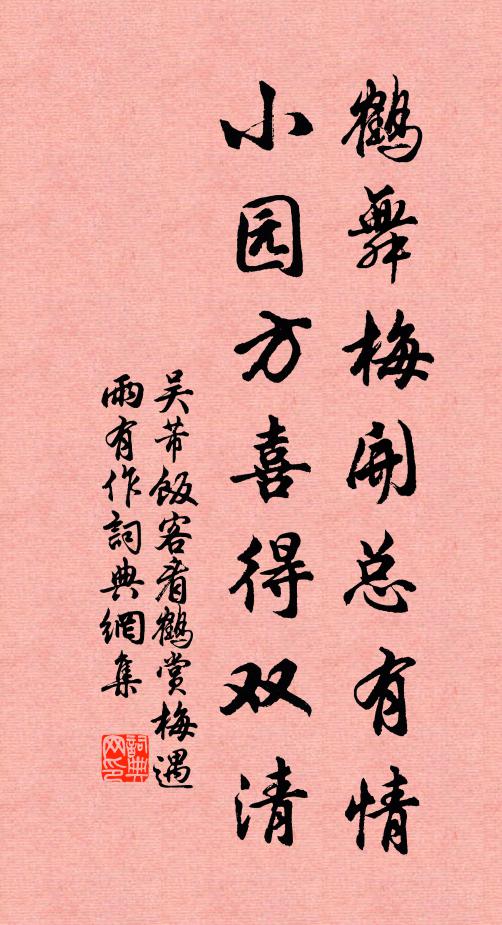 鹤舞梅开总有情
小园方喜得双清
吴芾飯客看鶴赏梅遇
雨有作詞典網集
詞典网印